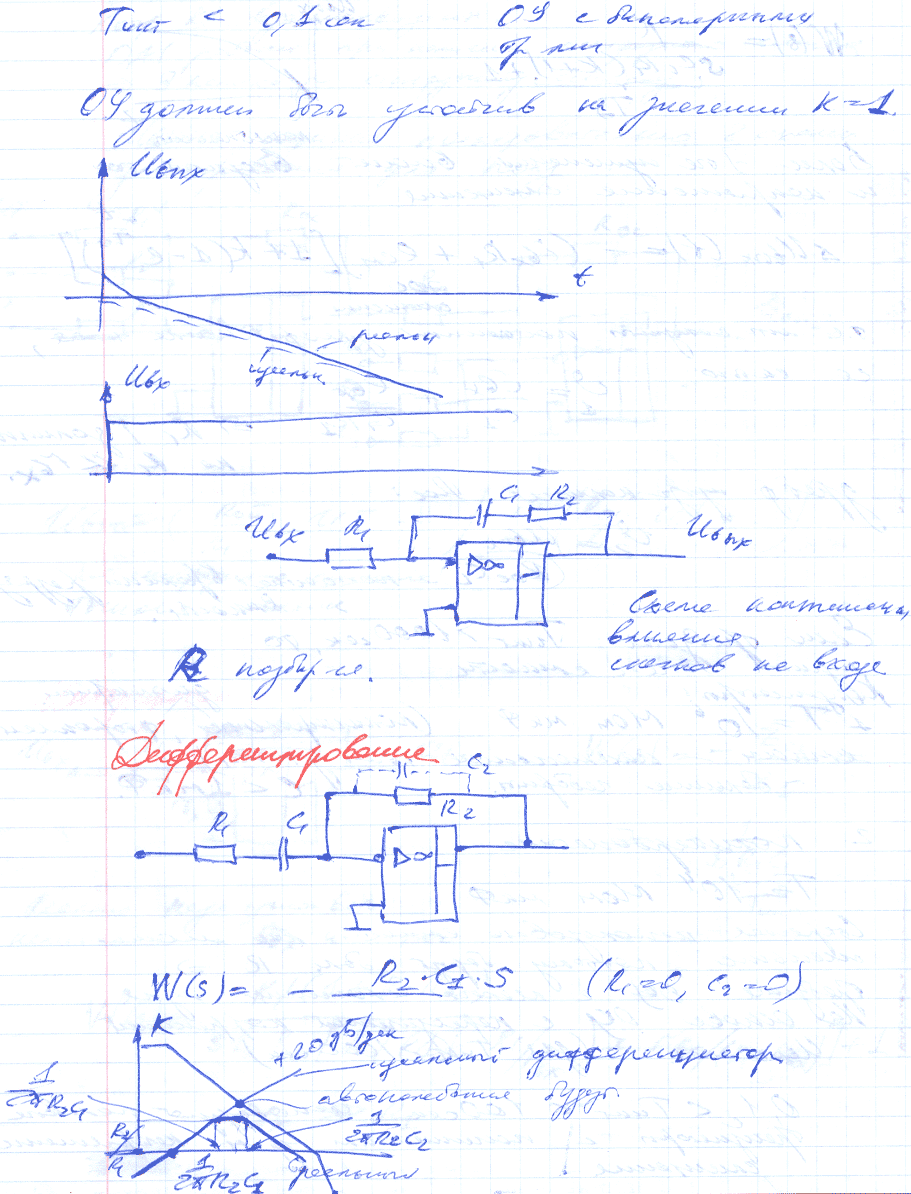 Tинт < 0,1 сек ОУ с биполярными
тр-ми
ОУ должен быть устойчив на значении K=1.
Uвых
t
реальн
идеальн.
Uвх
C₁ R₂
Uвх R₁ Uвых
▷∞
Схема
влияние
токов на входе
R₂ подбир-ся.
Дифференцирование
C₂
R₁ C₁ R₂
▷∞
W(s) = - R₂·C₁·S (R₁=0, C₂=0)
K
+20дБ/дек
идеальный дифференциатор
автоколебания будут.
1/2πR₂C₁
1/2πR₂C₂
R₂/R₁
1/2πR₂C₁ реальный